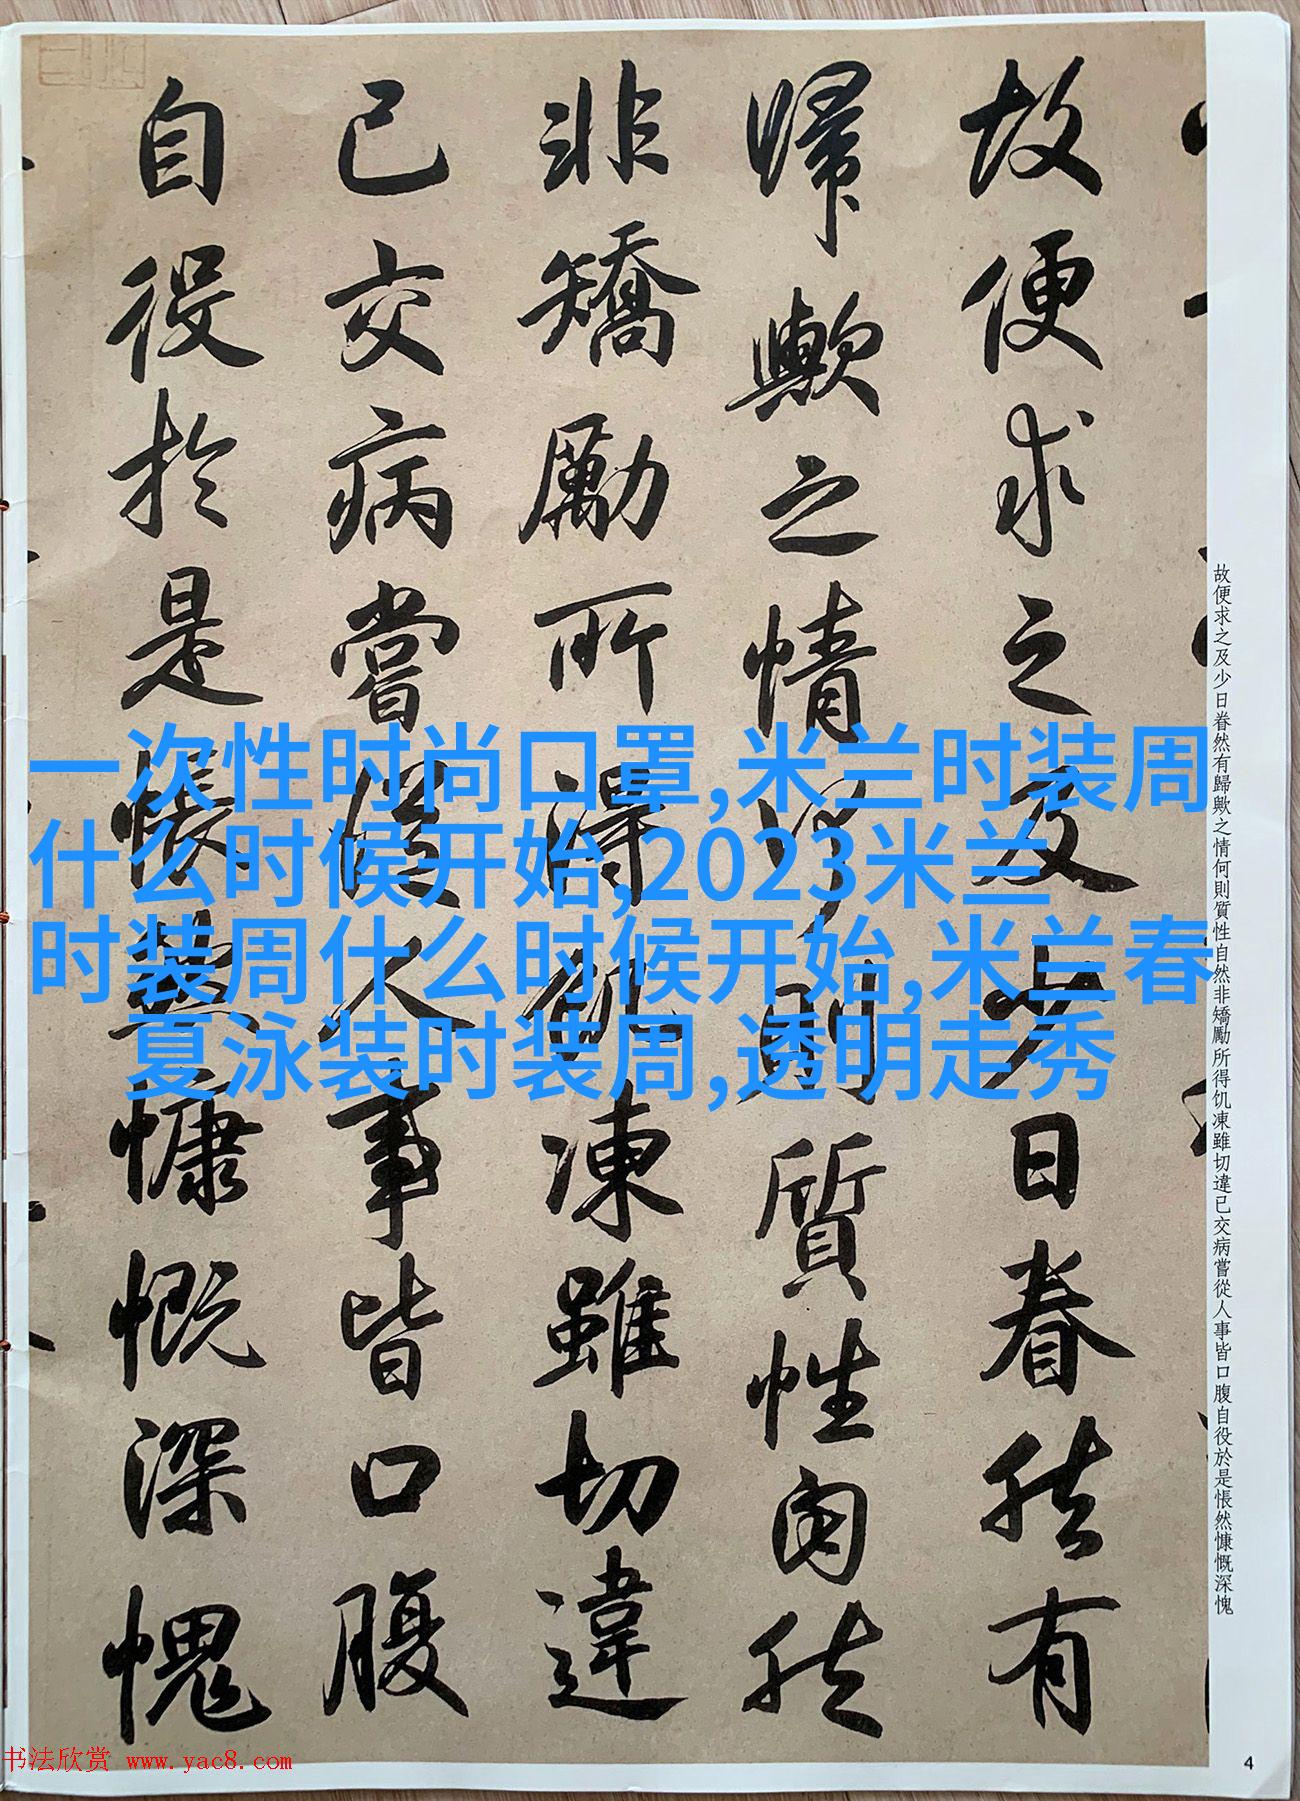 故便求之及少日眷然有
歸歟之情何則質性自然
非矯勵所得飢凍雖切違
已交病嘗從人事皆口腹
自役於是悵然慷慨深愧
故便求之及少日眷然有歸歟之情何則質性自然非矯勵所得饥凍雖切違已交病嘗從人事皆口腹自役於是悵然慷慨深愧
一次性时尚口罩,米兰时装周
什么时候开始,2023米兰
时装周什么时候开始,米兰春
夏泳装时装周,透明走秀
书法欣赏 www.yac8.com
4